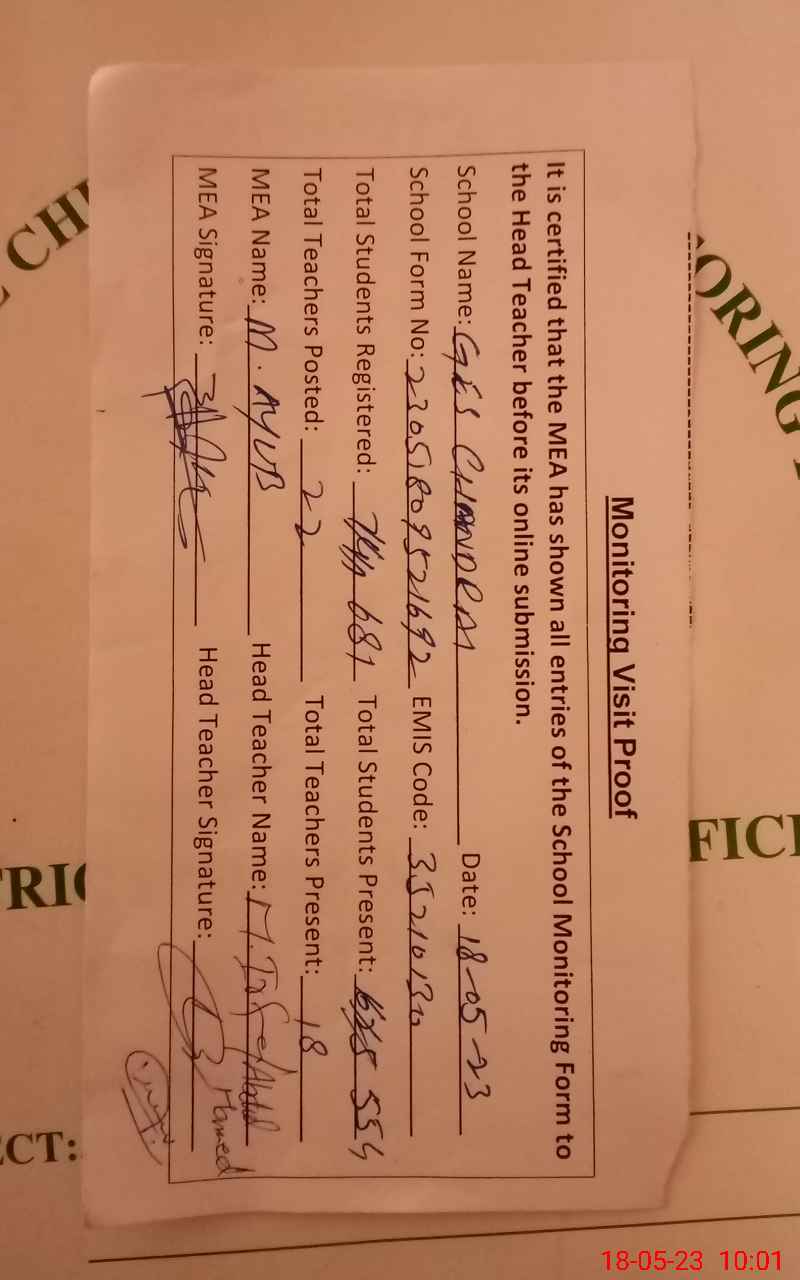 Monitoring Visit Proof
It is certified that the MEA has shown all entries of the School Monitoring Form to
the Head Teacher before its online submission.
School Name: GES CHANDRAI Date: 18-05-23
School Form No: 23051809521692 EMIS Code: 35210130
Total Students Registered: 681 Total Students Present: 554
Total Teachers Posted: 22 Total Teachers Present: 18
MEA Name: M. AYUB Head Teacher Name: M.
MEA Signature: Head Teacher Signature:
ORING
CH
FICE
RIC
CT:
18-05-23 10:01